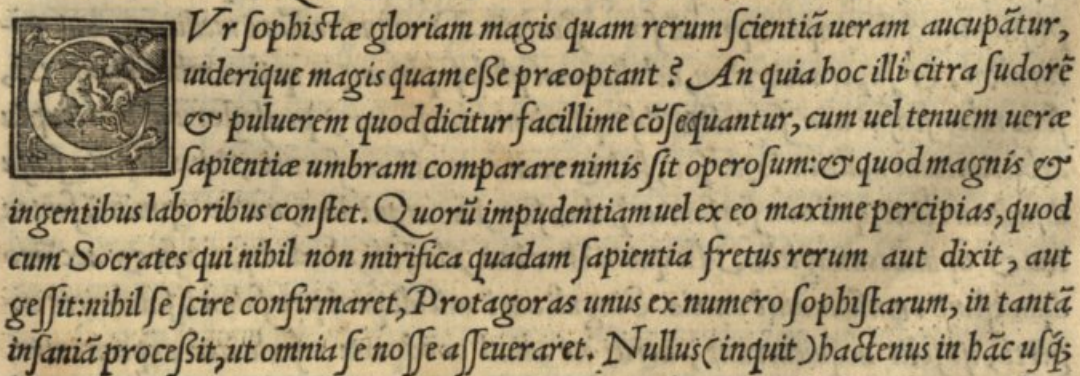 CVr sophistæ gloriam magis quam rerum scientiā ueram aucupātur,
uiderique magis quam eße præoptant? An quia hoc illi citra sudorē
& puluerem quod dicitur facillime cōsequantur, cum uel tenuem ueræ
sapientiæ umbram comparare nimis sit operosum: & quod magnis &
ingentibus laboribus constet. Quorū impudentiam uel ex eo maxime percipias, quod
cum Socrates qui nihil non mirifica quadam sapientia fretus rerum aut dixit, aut
gessit: nihil se scire confirmaret, Protagoras unus ex numero sophistarum, in tantā
insaniā proceßit, ut omnia se nosse asseueraret. Nullus (inquit) hactenus in hāc usq́;